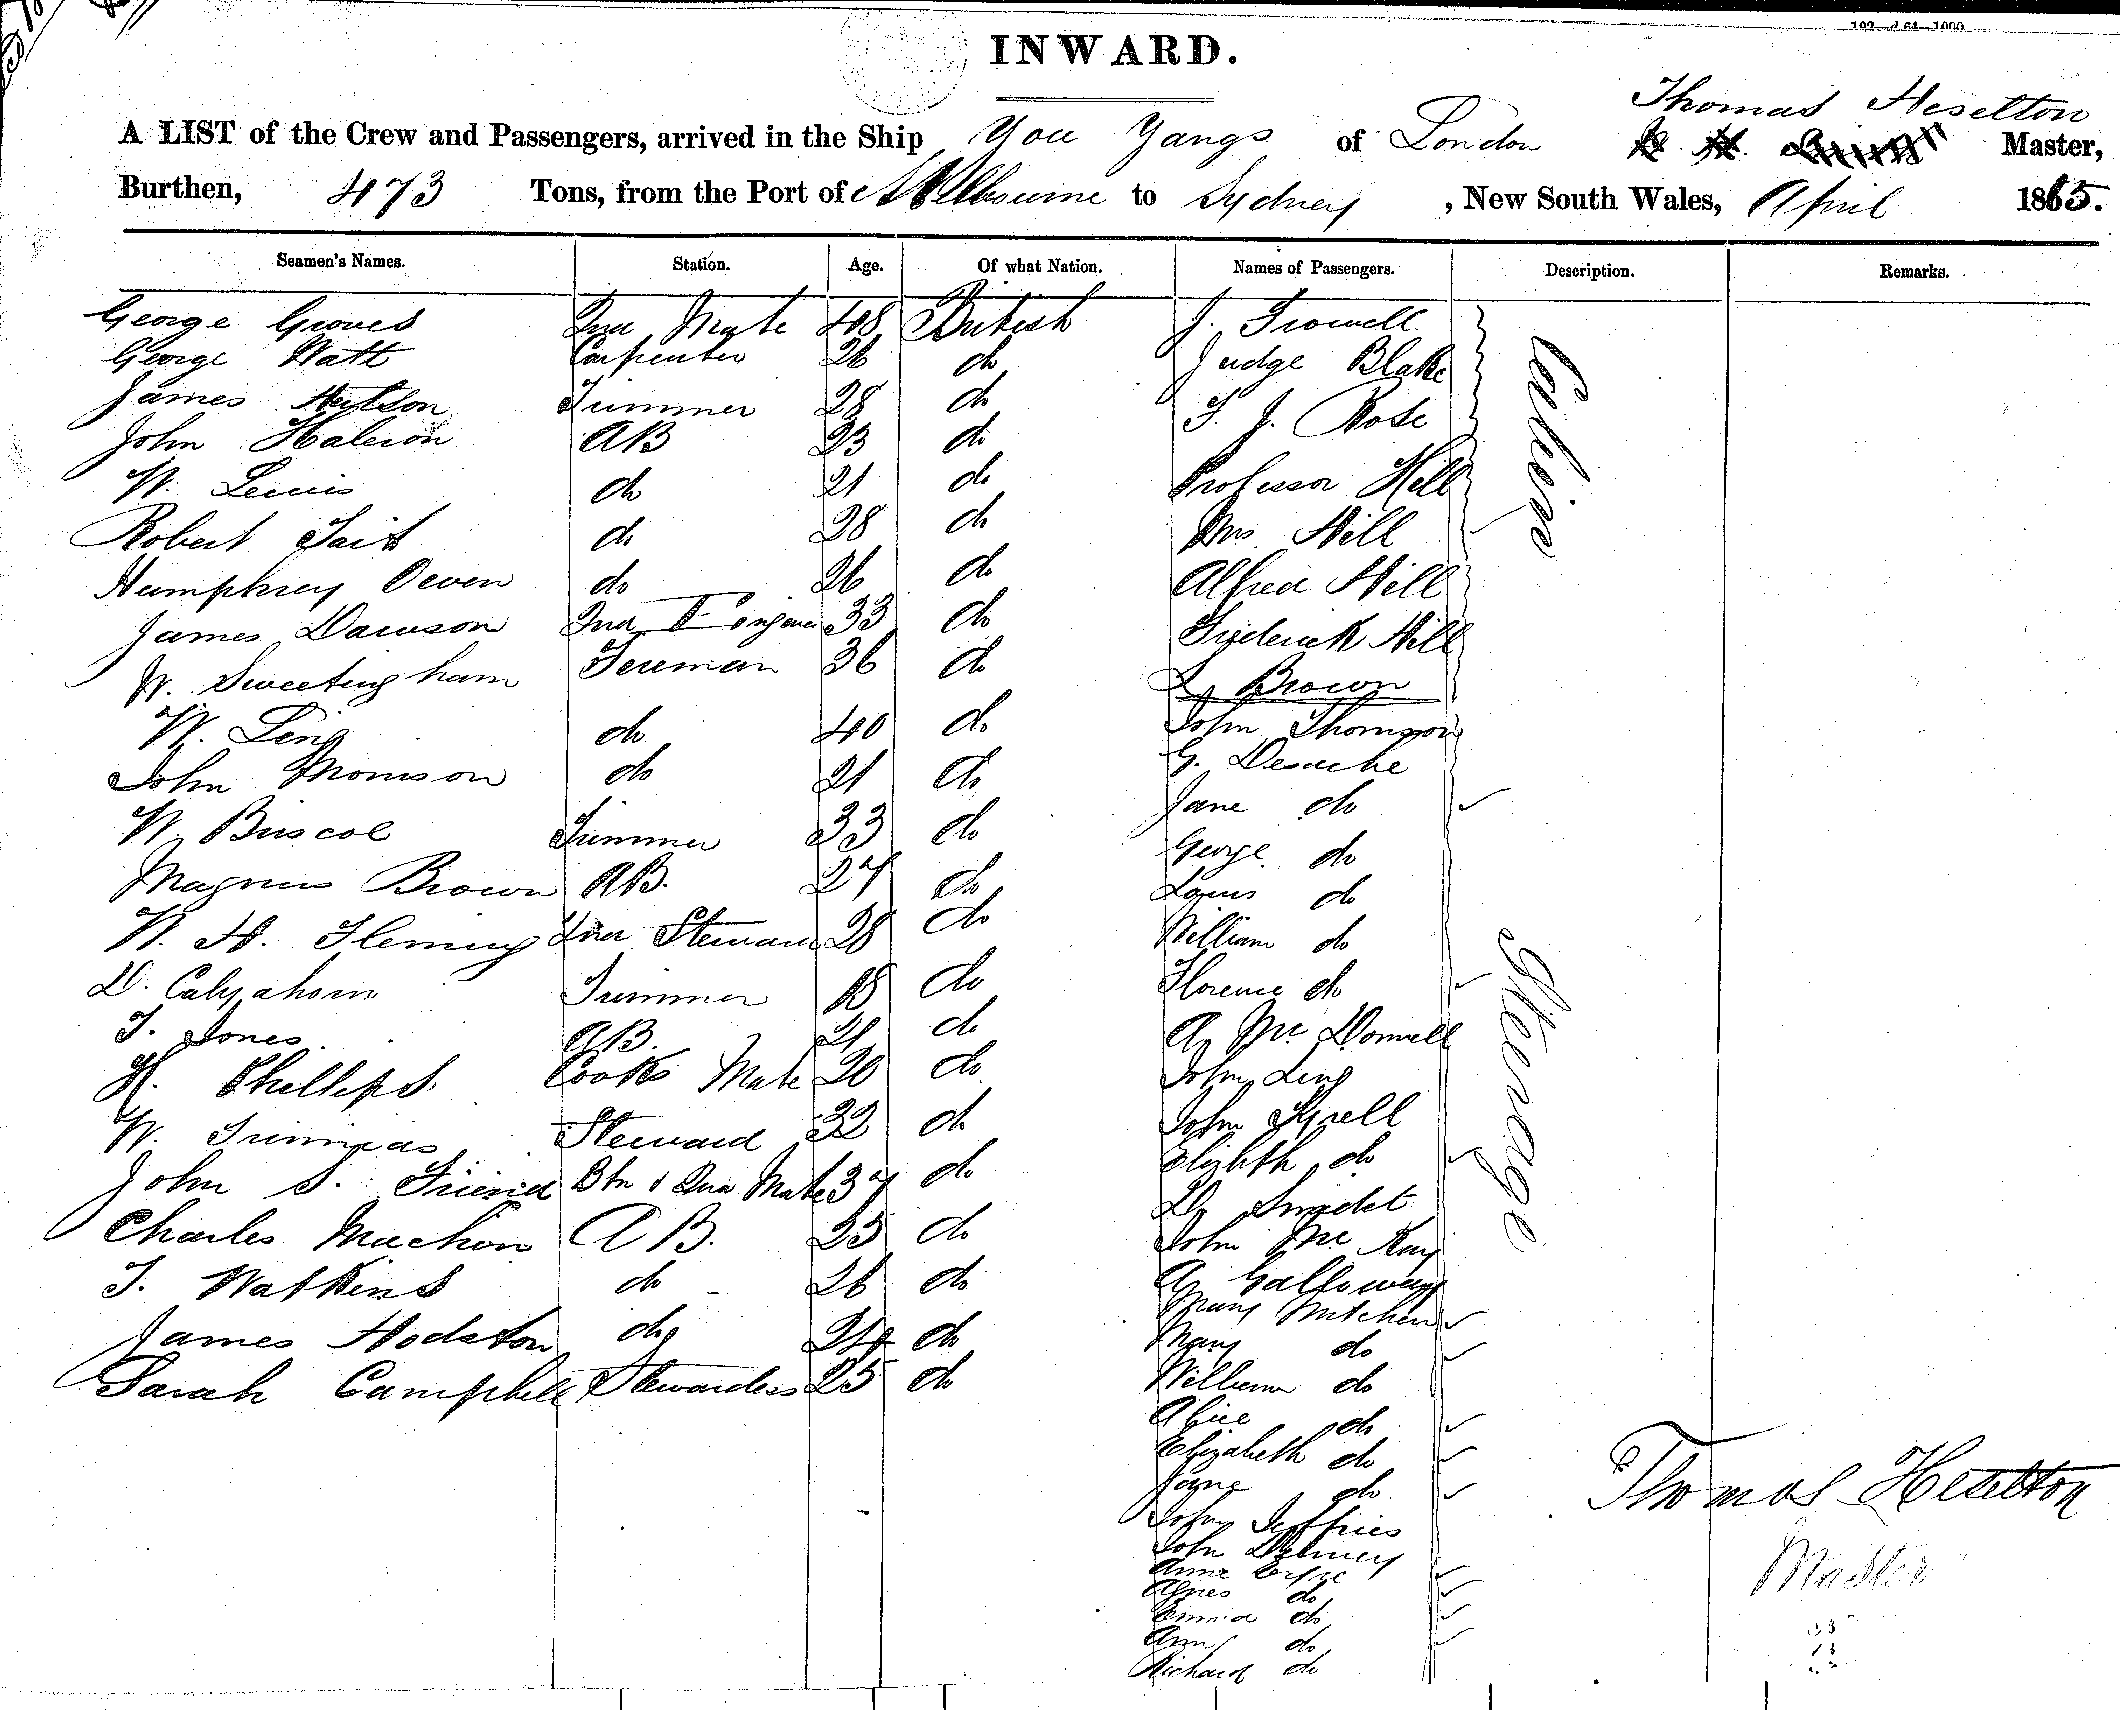 INWARD.
Thomas Heselton
A LIST of the Crew and Passengers, arrived in the Ship You Yangs of London Master,
Burthen, 473 Tons, from the Port of Melbourne to Sydney , New South Wales, April 1865.
Seamen's Names. Station. Age. Of what Nation. Names of Passengers. Description. Remarks.
George Groves 2nd Mate 48 British J. Trowell Cabin
George Watt Carpenter 26 do Judge Blake
James Hutson Trimmer 28 do T. J. Rose
John Halcron AB 23 do Professor Hill
W. Lewis do 21 do Mrs Hill
Robert Tait do 28 do Alfred Hill
Humphrey Owen do 26 do Frederick Hill
James Dawson 2nd Engineer 33 do Brown
W. Sweetingham Fireman 36 do John Thomson Steerage
W. Ling do 40 do G. Desuche
John Thomson do 21 do Jane do
W. Briscoe Trimmer 33 do George do
Magnus Brown AB. 27 do Louis do
W. H. Fleming 2nd Steward 28 do William do
D. Trimmer 18 do Florence do
T. Jones AB. 21 do A Mc Donnell
H. Phillips Cooks Mate 20 do John Ling
W. Steward 32 do John Tyrell
John S. Friend Btn & 2nd Mate 37 do Elizbth do
Charles Machon AB. 25 do D
T. Watkins do 26 do John Mc Kay
James Hodston do 24 do A Galloway
Sarah Campbell Stewardess 25 do Mary Mitchell
Mary do
William do
Alice do
Elizabeth do
Jayne do
John Jeffries
John
Anne
Agnes do
Emma do
Ann do
Richard do
Thomas Heselton
Master